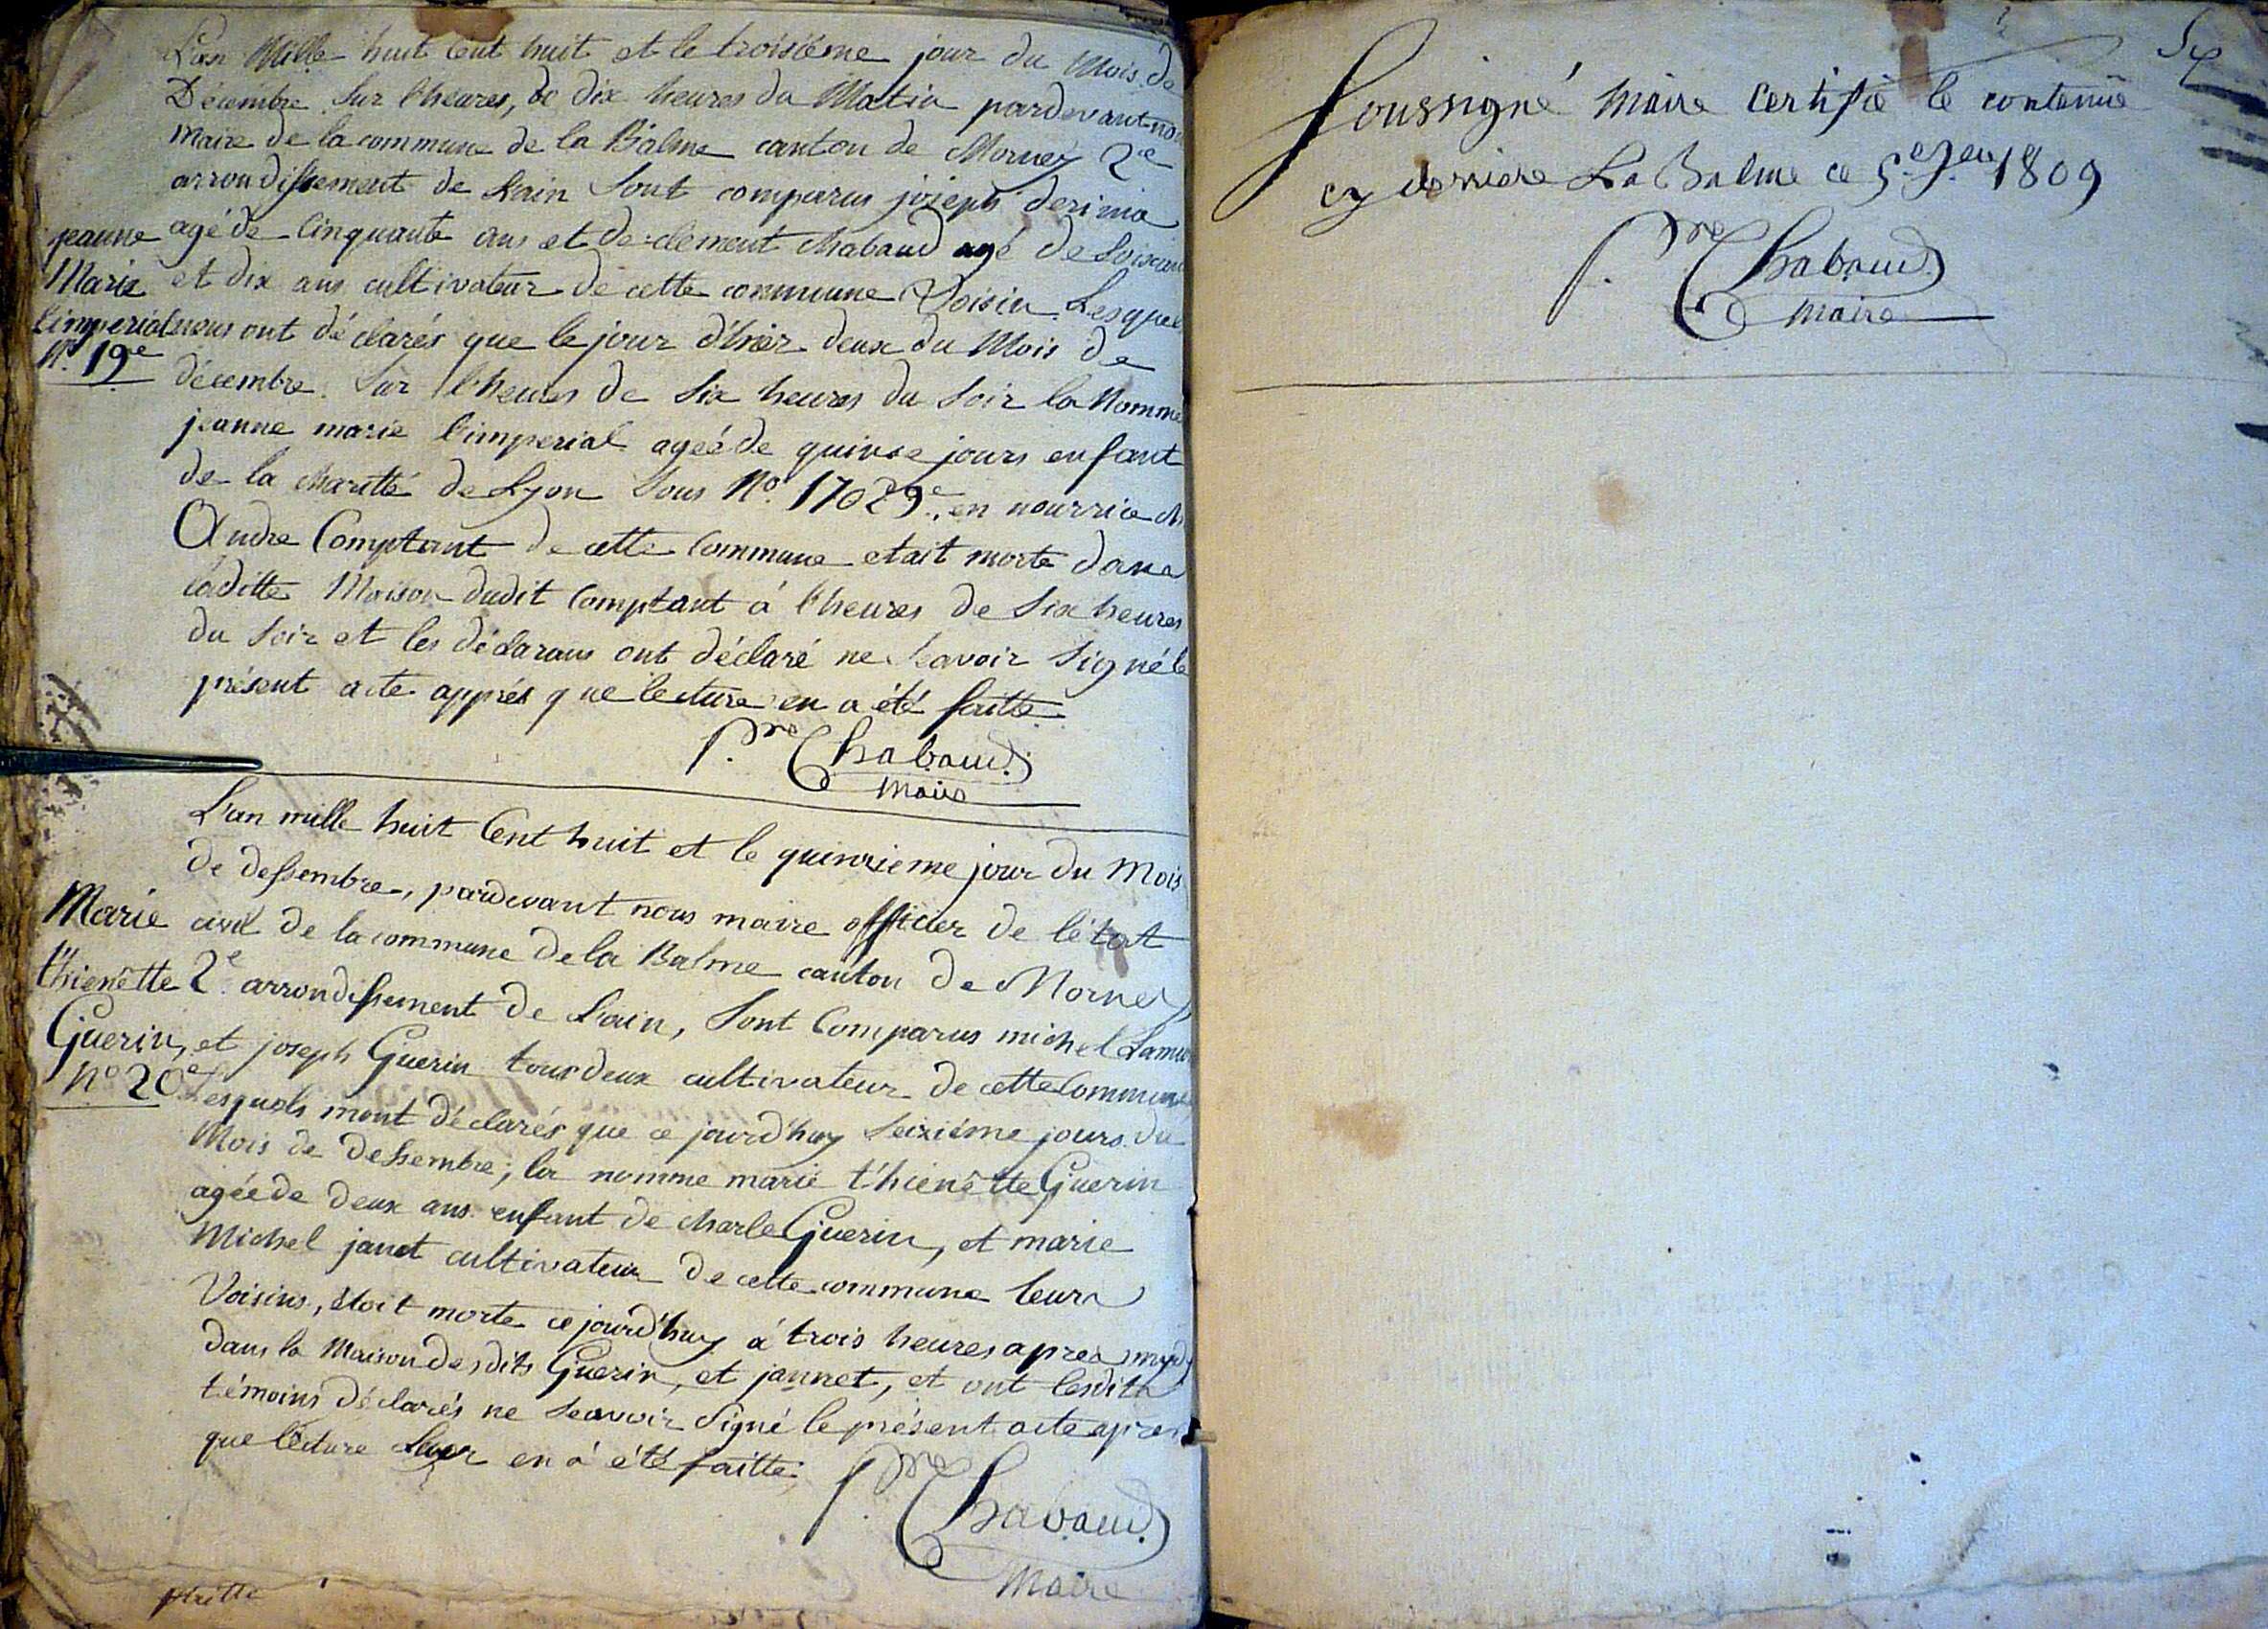 L'an Mille huit Cent huit et le troisième jour du Mois de
Décembre Sur l'heures, de dix heures du Matin pardevant no
maire de la commune de la Balme canton de Mornay 2e
arrondissement de Lain Sont comparus joseph derima
agé de Cinquante ans et de clement Chabaud agé de Soisan
et dix ans cultivateur de cette commune Voisin Lesquel
nous ont déclarés que le jour d'hier deux du Mois de
décembre Sur l'heures de Six heures du Soir la Nomme
jeanne marie l'imperial ageé de quinse jours enfant
de la charitté de Lyon Sous No. 17029e. en nourrice ch
Andre Comptant de cette Commune etait morte dans
laditte Maison dudit Comptant á l'heures de Six heures
du Soir et les déclarans ont déclaré ne Scavoir Signé le
présent acte apprés que lecture en a été faitte
P.re Chabaud
Maire
jeanne
Marie
l'imperial
No. 19e
L'an mille huit Cent huit et le quinzieme jour du Mois
de dessembre, pardevant nous maire officier de l'état
civil de la commune de la Balme canton de Mornay
2e. arrondissement de Lain, Sont Comparus michel Lamu
et joseph Guerin tous deux cultivateur de cette Commune
Lesquels mont déclarés que ce jourd'huy Seiziéme jours du
Mois de dessembre; la nomme marie t'hienêtte Guerin
agée de deux ans enfant de charle Guerin, et marie
Michel janet cultivateur de cette commune leurs
Voisins, étoit morte ce jourd'huy á trois heures apres mydy
dans la Maison desdits Guerin, et jannet, et ont lesdits
témoins déclarés ne Scavoir Signé le présent acte apres
que lécture Leur en á été faitte.
P.re Chabaud
Maire
Marie
t'hienêtte
Guerin,
No 20e
Soussigné Maire Certifie le contenue
cy derriere La Balme ce 5e. Jer. 1809
P.re Chabaud
Maire